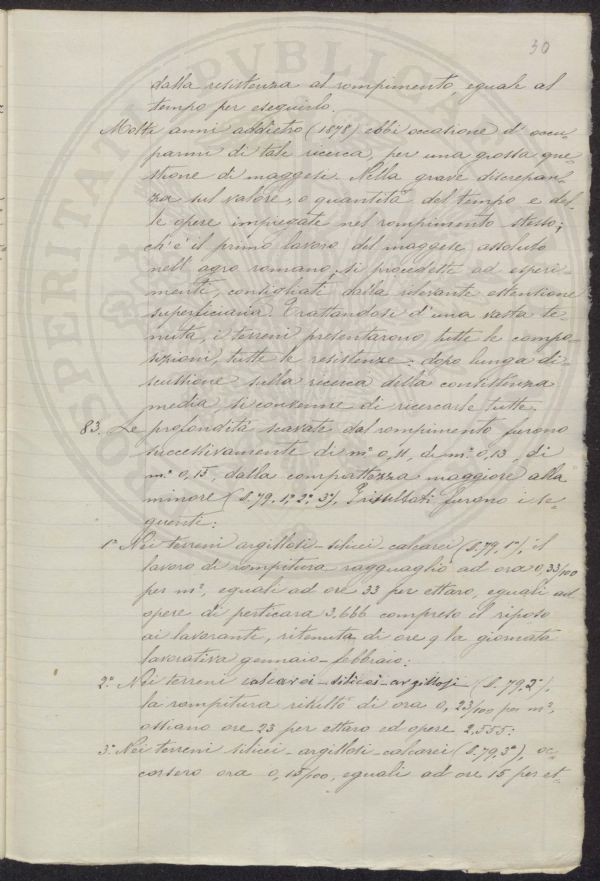 30
dalla resistenza al rompimento, eguale al
tempo per eseguirlo.
Molti anni addietro (1878) ebbi occasione d'occu-
parmi di tale ricerca, per una grossa que-
stione di maggesi. Nella grave discrepan-
za sul valore, o quantità del tempo e del-
le opere impiegate nel rompimento stesso;
ch'è il primo lavoro del maggese assoluto
nell'agro romano, si procedette ad esperi-
menti, consigliati dalla rilevante estensione
superficiaria. Trattandosi d'una vasta te-
nuta, i terreni presentarono tutte le compo-
sizioni, tutte le resistenze: dopo lunga di-
scussione sulla ricerca della consistenza
media, si convenne di ricercarle tutte.
83. Le profondità scavate dal rompimento furono
successivamente di m.i 0,11, di m.i 0,13, di
m.i 0,15, dalla compattezza maggiore alla
minore (S. 79. 1° 2° 3°). I risultati furono i se-
guenti:
1° Nei terreni argillosi-silici-calcarei (S. 79. 1°), il
lavoro di rompitura ragguagliò ad ora 0,33/100
per m², eguali ad ore 33 per ettaro, eguali ad
opere di perticara 3.666 compreso il riposo
ai lavorante, ritenuta di ore 9 la giornata
lavorativa gennaio-febbraio:
2° Nei terreni calcarei-silicei-argillosi (S. 79. 2°),
la rompitura risultò di ora 0,23/100 per m²,
ossiano ore 23 per ettaro ed opere 2,555:
3° Nei terreni silicei-argillosi-calcarei (S. 79. 3°), oc-
corsero ora 0,15/100, eguali ad ore 15 per et-
PROSPERITATI PVBLICAE